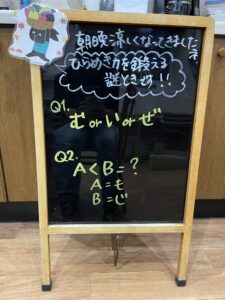 朝晩涼しくなってきましたね
ひらめき力を鍛える
謎ときです!!
Q1.
む or い or ぜ
Q2.
A<B=?
A=も
B=じ